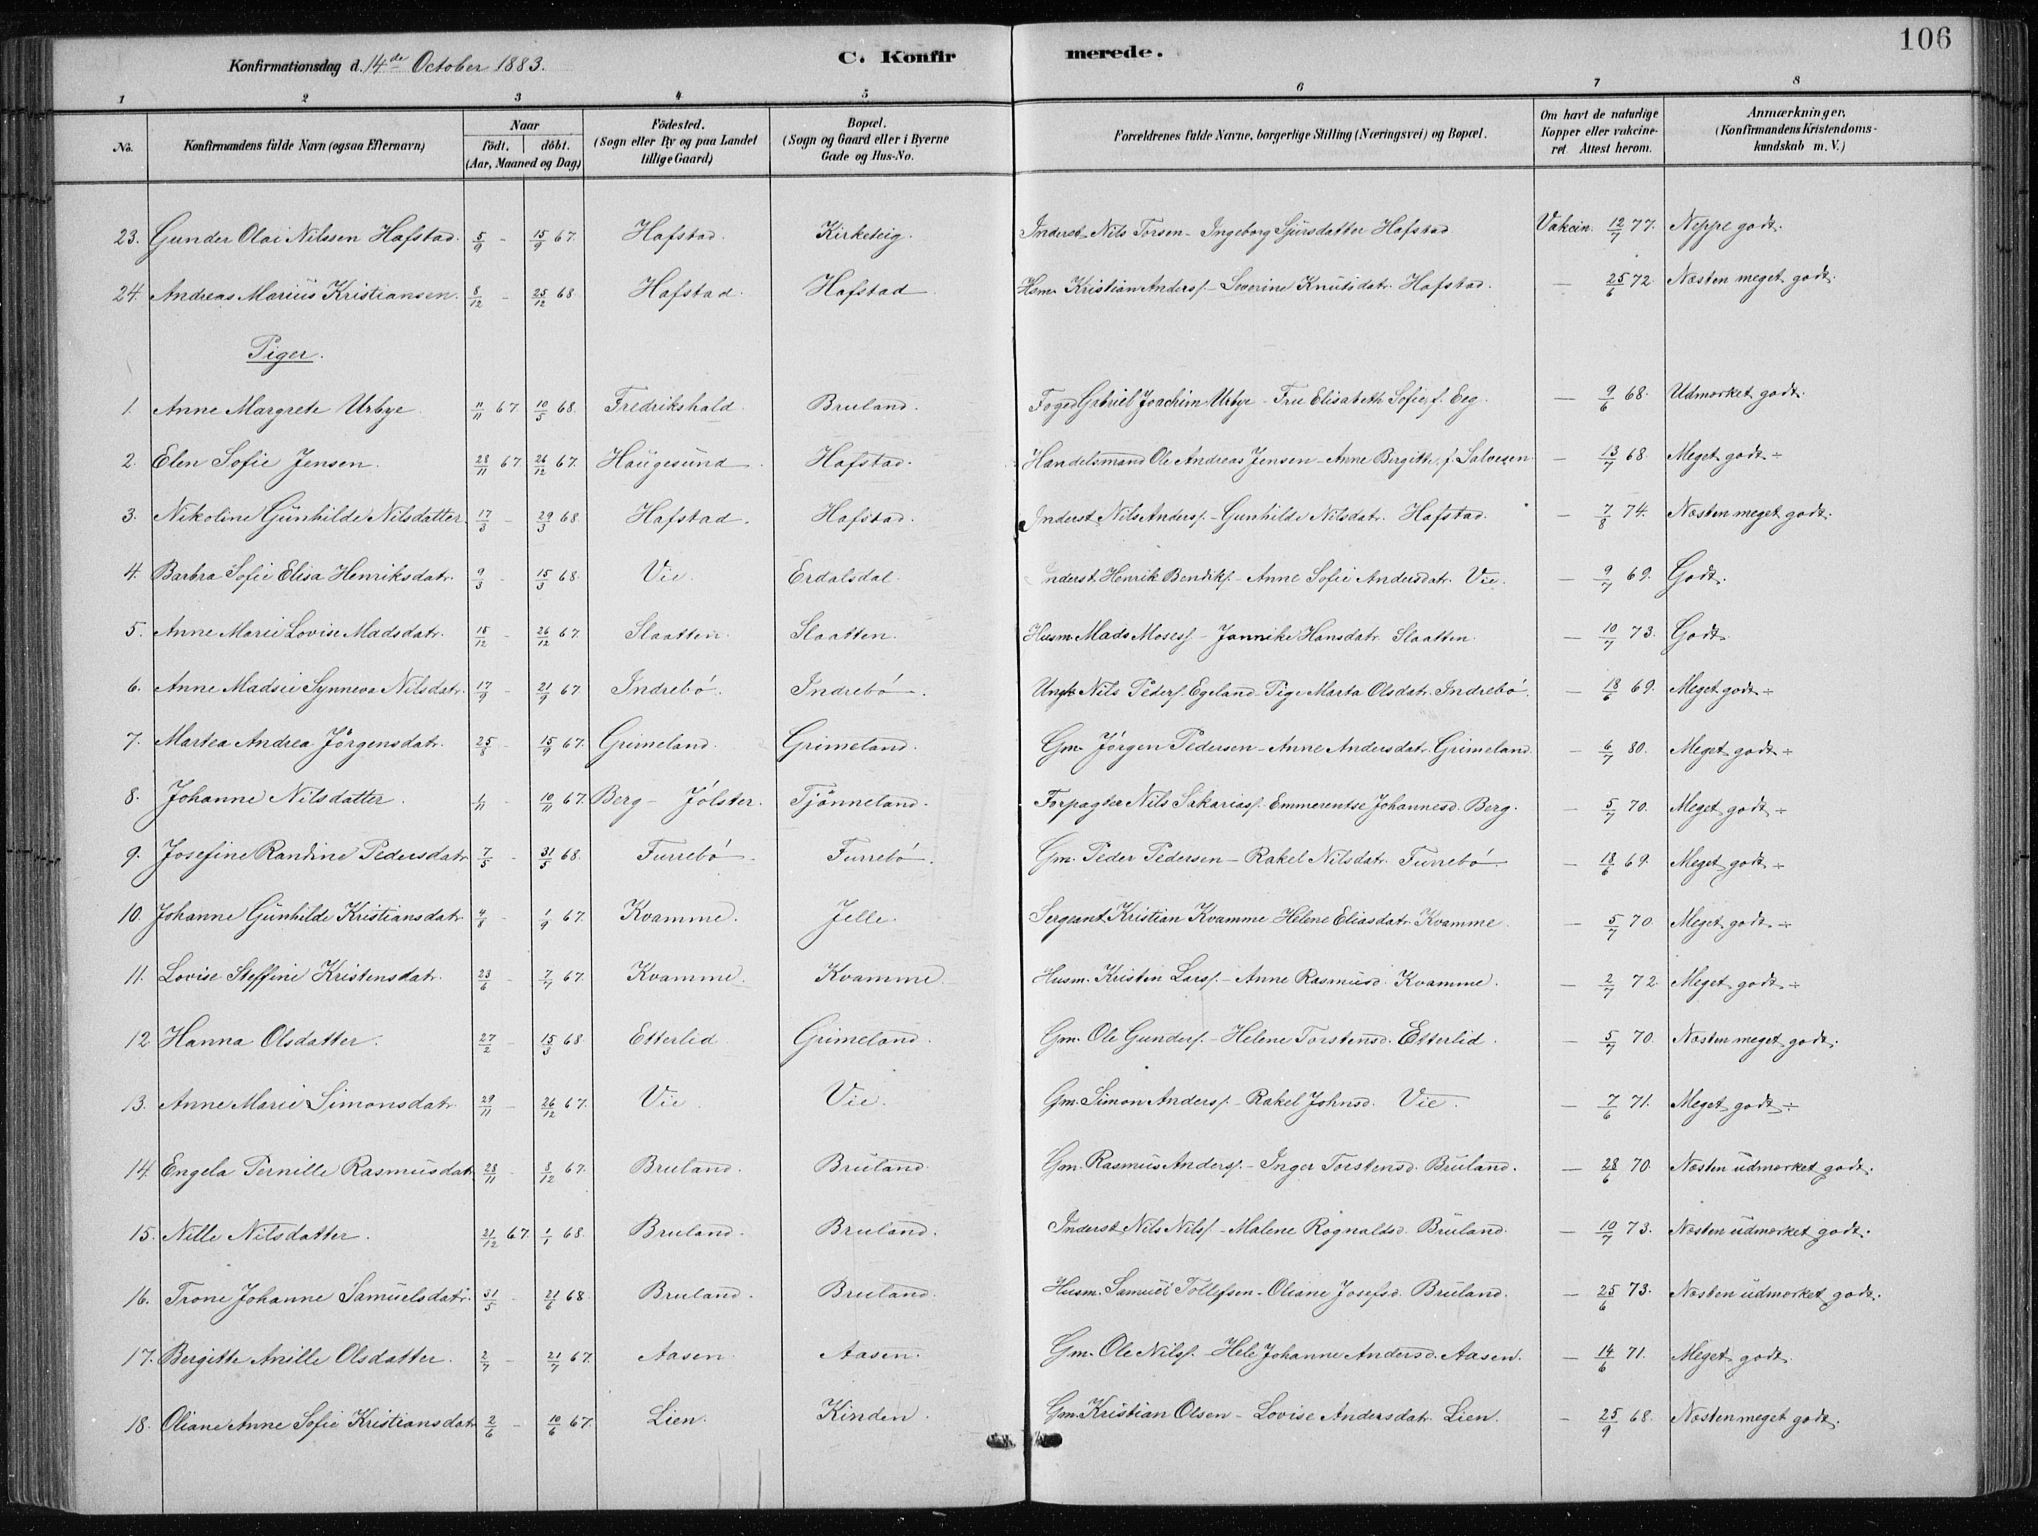 106
Konfirmationsdag d. 14de October 1883. C. Konfirmerede.
1 2 3 4 5 6 7 8
No. Konfirmandens fulde Navn (ogsaa Efternavn) Naar födt. döbt. (Aar, Maaned og Dag) Födested. (Sogn eller By og paa Landet tillige Gaard) Bopæl. (Sogn og Gaard eller i Byerne Gade og Hus-No. Forældrenes fulde Navne, borgerlige Stilling (Næringsvei) og Bopæl. Om havt de naturlige Kopper eller vakcineret Attest herom. Anmærkninger. (Konfirmandens Kristendomskundskab m. V.)
23. Gunder Olai Nilssen Hafstad. 5/9 - 15/9 67. Hafstad. Kirketeig. Inderst Nils Torsen - Ingeborg Sjursdatter Hafstad. Vakcin. 12/7 77. Neppe godt.
24. Andreas Marius Kristiansen. 8/12 - 25/12 68. Hafstad. Hafstad Hsm. Kristian Anders. - Severine Knutsdatr. Hafstad. — 25/6 72. Næsten meget godt.
Piger.
1. Anne Margrete Urbye. 11/11 67. 10/5 68. Fredrikshald. Bruland. Foged Gabriel Joachim Urbye - Fru Elisabeth Sofie, f. Eeg. — 9/6 68. Udmærket godt.
2. Elen Sofie Jensen. 28/11 67 26/12 67. Haugesund. Hafstad. Handelsmand Ole Andreas Jensen - Anne Bergitte, f. Salvesen — 13/7 68. Meget godt ÷
3. Nikoline Gunhilde Nilsdatter. 17/3 - 29/3 68. Hafstad. Hafstad. Inderst Nils Anders. - Gunhilde Nilsdatr. Hafstad. — 7/8 74. Næsten meget godt.
4. Barbra Sofie Elisa Henriksdatr. 9/3 - 15/3 68. Vie. Erdalsdal. Inderst. Henrik Bendiks. - Anne Sofie Andersdatr. Vie. — 9/7 69. Godt.
5. Anne Marie Lovise Madsdatr. 15/12 - 26/12 67. Slaatten. Slaatten. Husm. Mads Moses. - Jannike Hansdatr. Slaatten. — 10/7 73. Godt.
6. Anne Madsie Synneva Nilsdatr. 17/9 - 21/9 67. Indrebö. Indrebö. Ungk. Nils Peders. Egeland - Pige Marta Olsdatr. Indrebö. — 18/6 69. Meget godt ÷
7. Martea Andrea Jörgensdatr. 25/8 - 15/9 67. Grimeland. Grimeland. Gm. Jörgen Pedersen - Anne Andersdatr. Grimeland. — 6/7 80. Meget godt ÷
8. Johanne Nilsdatter. 1/11 - 10/11 67. Berg - Jölster. Tjönneland. Forpagter Nils Sakarias. - Emmerentse Johannesd. Berg. — 5/7 70. Meget godt ÷
9. Josefine Randine Pedersdatr. 7/5 - 31/5 68. Furrebö. Furrebö. Gm. Peder Pedersen - Rakel Nilsdatr. Furrebö — 18/6 69. Meget godt ÷
10. Johanne Gunhilde Kristiansdatr. 4/8 - 1/9 67. Kvamme. Jelle. Sergeant Kristian Kvamme - Helene Eliasdatr. Kvamme. — 5/7 70. Meget godt ÷
11. Lovise Steffine Kristensdatr. 23/6 - 7/7 67. Kvamme. Kvamme. Husm. Kristen Lars. - Anne Rasmusd. Kvamme. — 2/7 72. Meget godt ÷
12. Hanna Olsdatter. 27/2 - 15/3 68. Etterlid Grimeland. Gm. Ole Gunders. - Helene Torstensd. Etterlid. — 5/7 70. Næsten meget godt.
13. Anne Marie Simonsdatr. 29/11 - 26/12 67. Vie. Vie. Gm. Simon Anders. - Rakel Johnsd. Vie. — 7/6 71. Meget godt ÷
14. Engela Pernille Rasmusdatr. 28/11 - 8/12 67. Bruland. Bruland. Gm. Rasmus Anders. - Inger Torstensd. Bruland. — 28/6 70. Næsten udmærket godt.
15. Nille Nilsdatter. 21/12 67. 1/1 68. Bruland. Bruland. Inderst Nils Nils. - Malene Rognaldsd. Bruland. — 10/7 73. Næsten udmærket godt.
16. Trone Johanne Samuelsdatr. 31/5 - 21/6 68. Bruland. Bruland. Husm. Samuel Tollefsen - Oliane Josefsd. Bruland. — 25/6 73. Næsten udmærket godt.
17. Bergitte Anille Olsdatter. 2/7 - 21/7 67. Aasen. Aasen. Gm. Ole Nils. - Hele Johanne Andersd. Aasen. — 14/6 71. Meget godt.
18. Oliane Anne Sofie Kristiansdatr. 2/6 - 10/6 67. Lien. Kinden. Gm. Kristian Olsen - Lovise Andersdatr. Lien. — 25/9 68. Næsten meget godt.